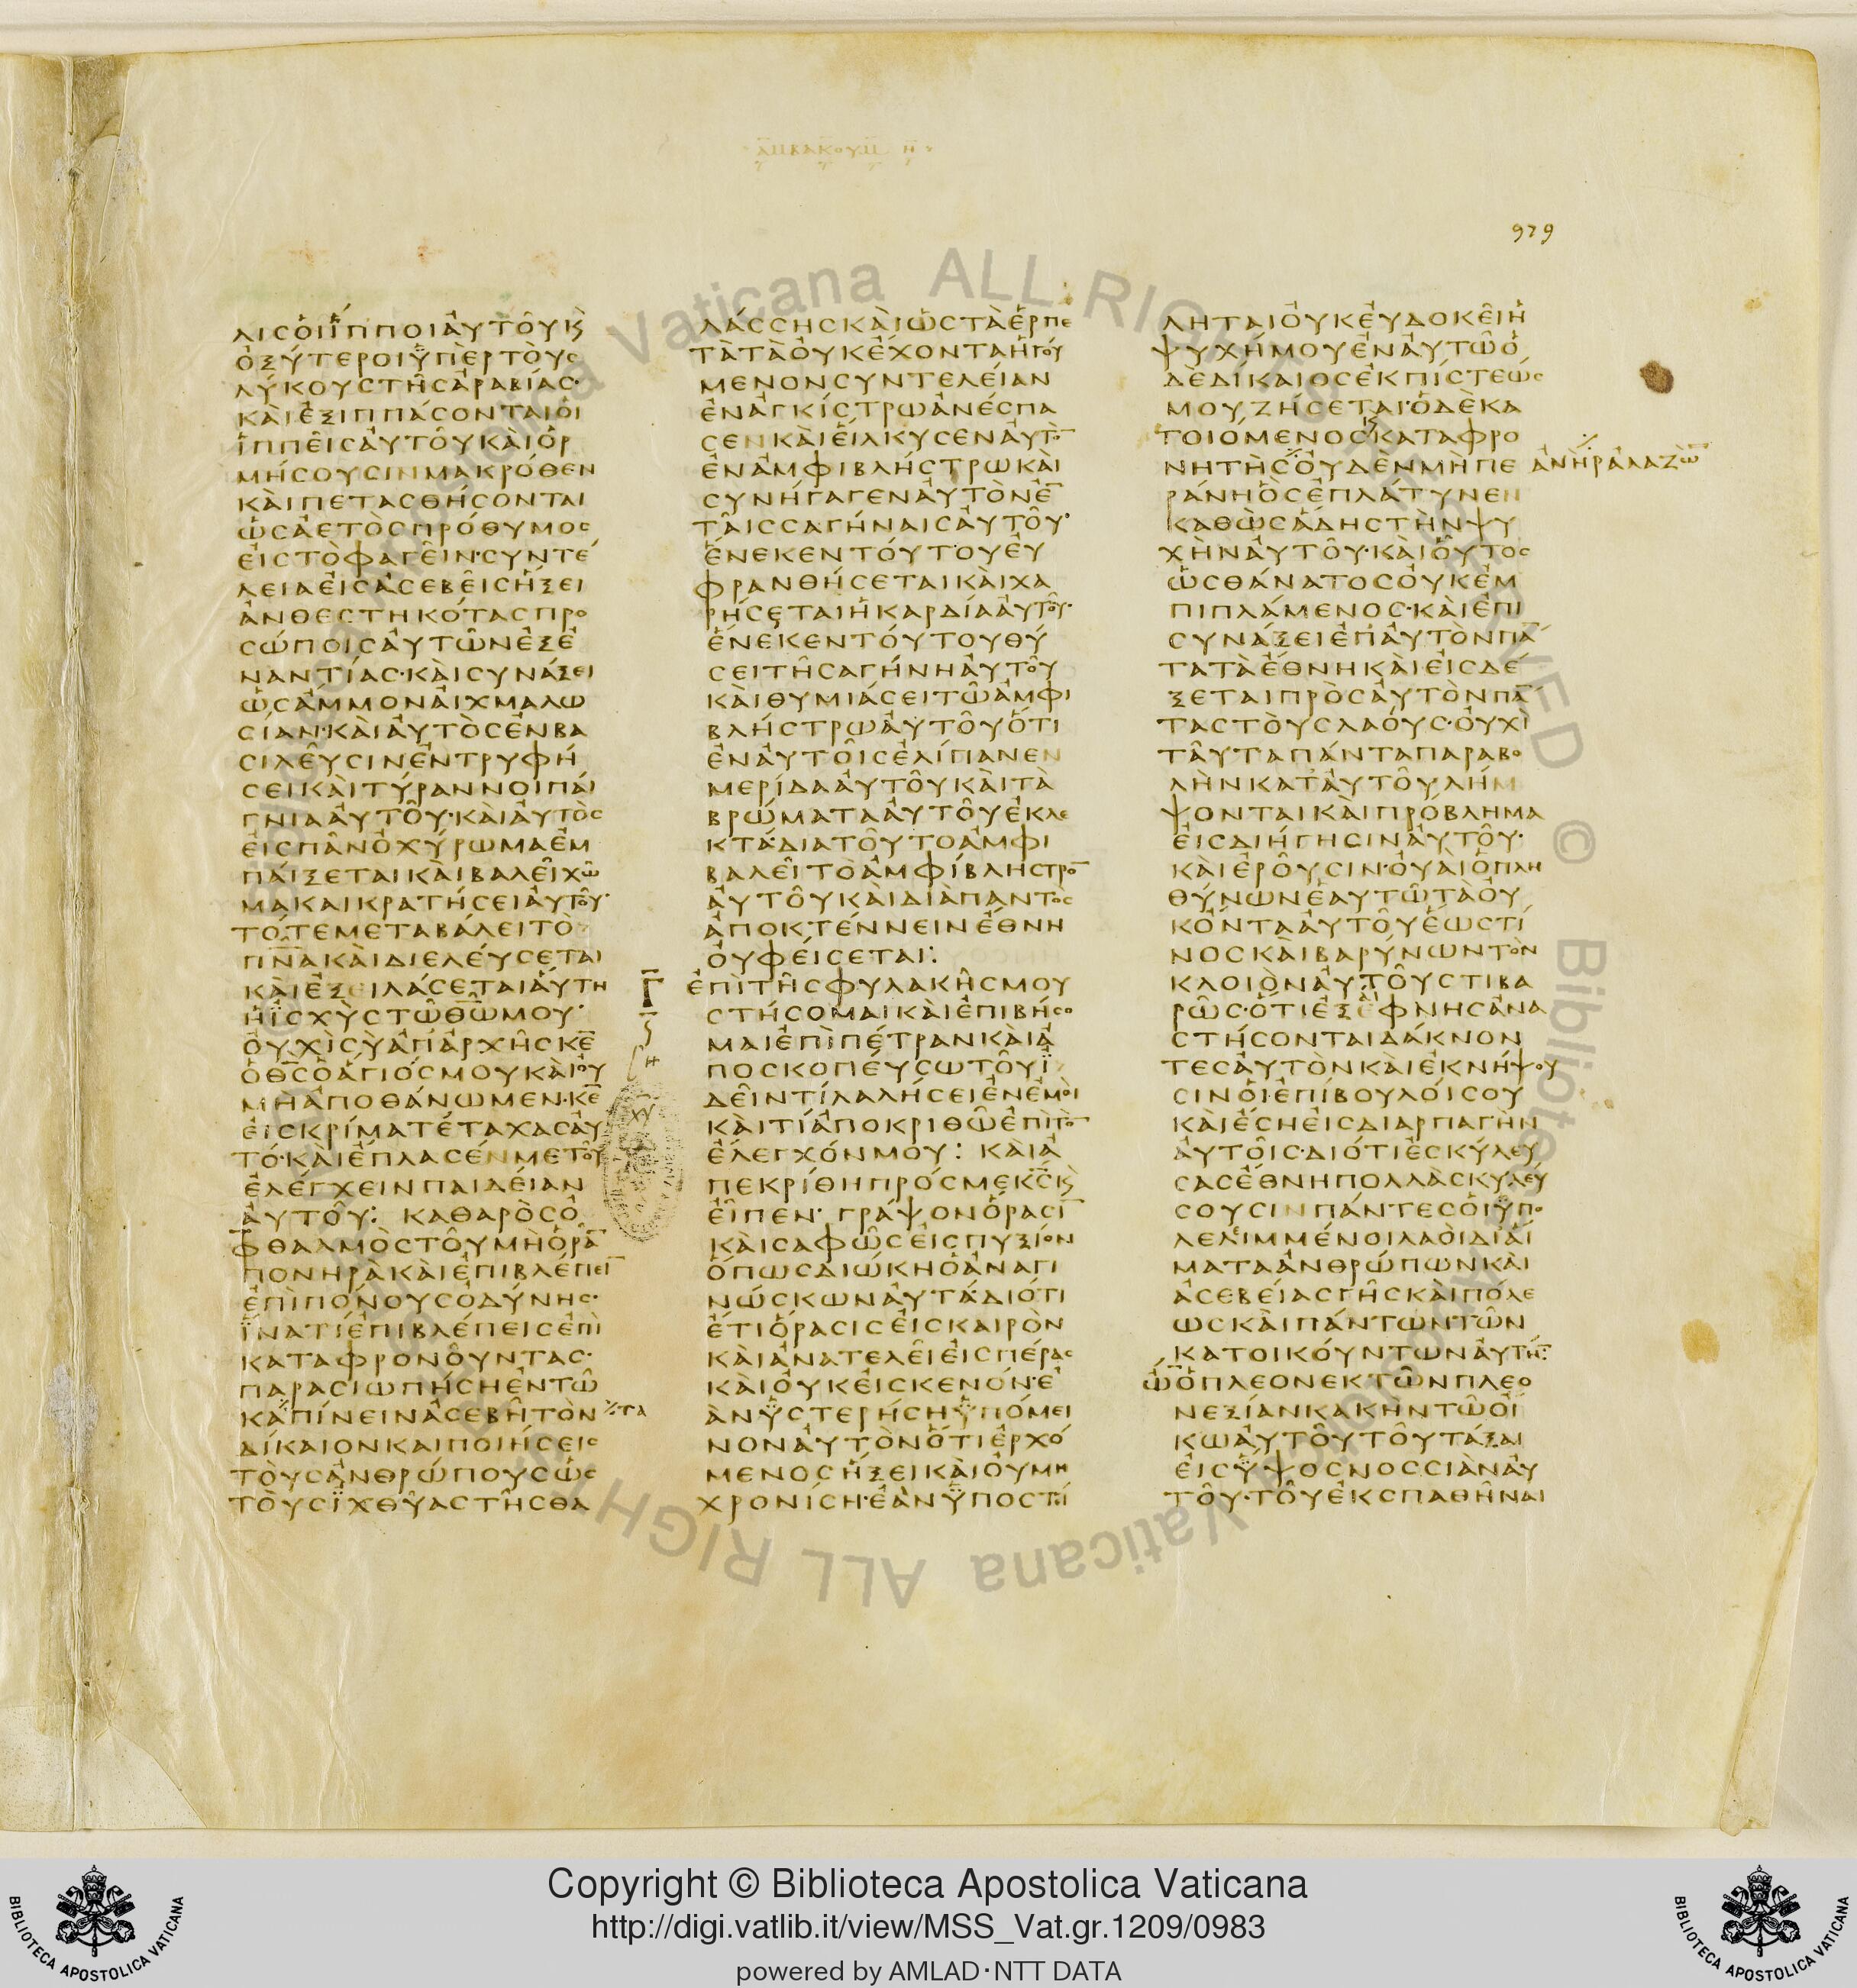 ΑΜΒΑΚΟΥΜ Η
979
ΛΙϹΟΙΙΠΠΟΙΑΥΤΟΥΚΑΙ
ΟΞΥΤΕΡΟΙΫΠΕΡΤΟΥϹ
ΛΥΚΟΥϹΤΗϹΑΡΑΒΙΑϹ·
ΚΑΙΕΞΙΠΠΑϹΟΝΤΑΙΟΙ
ΪΠΠΕΙϹΑΥΤΟΥΚΑΙΟΡ
ΜΗϹΟΥϹΙΝΜΑΚΡΟΘΕΝ
ΚΑΙΠΕΤΑϹΘΗϹΟΝΤΑΙ
ΩϹΑΕΤΟϹΠΡΟΘΥΜΟϹ
ΕΙϹΤΟΦΑΓΕΙΝ·ϹΥΝΤΕ
ΛΕΙΑΕΙϹΑϹΕΒΕΙϹΗΞΕΙ
ΑΝΘΕϹΤΗΚΟΤΑϹΠΡΟ
ϹΩΠΟΙϹΑΥΤΩΝΕΞΕ
ΝΑΝΤΙΑϹ·ΚΑΙϹΥΝΑΞΕΙ
ΩϹΑΜΜΟΝΑΙΧΜΑΛΩ
ϹΙΑΝ·ΚΑΙΑΥΤΟϹΕΝΒΑ
ϹΙΛΕΥϹΙΝΕΝΤΡΥΦΗ
ϹΕΙΚΑΙΤΥΡΑΝΝΟΙΠΑΙ
ΓΝΙΑΑΥΤΟΥ·ΚΑΙΑΥΤΟϹ
ΕΙϹΠΑΝΟΧΥΡΩΜΑΕΜ
ΠΑΙΞΕΤΑΙΚΑΙΒΑΛΕΙΧΩ
ΜΑΚΑΙΚΡΑΤΗϹΕΙΑΥΤΟΥ·
ΤΟΤΕΜΕΤΑΒΑΛΕΙΤΟ
ΠΝ̅ΑΚΑΙΔΙΕΛΕΥϹΕΤΑΙ
ΚΑΙΕΞΕΙΛΑϹΕΤΑΙΑΥΤΗ
ΗΪϹΧΥϹΤΩΘ̅Ω̅ΜΟΥ·
ΟΥΧΙϹΥΑΠΑΡΧΗϹΚΕ̅
ΟΘ̅ϹΟΑΓΙΟϹΜΟΥΚΑΙΟΥ
ΜΗΑΠΟΘΑΝΩΜΕΝ·ΚΕ̅
ΕΙϹΚΡΙΜΑΤΕΤΑΧΑϹΑΥ
ΤΟ·ΚΑΙΕΠΛΑϹΕΝΜΕΤΟΥ
ΕΛΕΓΧΕΙΝΠΑΙΔΕΙΑΝ
ΑΥΤΟΥ: ΚΑΘΑΡΟϹΟ
ΦΘΑΛΜΟϹΤΟΥΜΗΟΡΑ̅
ΠΟΝΗΡΑΚΑΙΕΠΙΒΛΕΠΕΙ̅
ΕΠΙΠΟΝΟΥϹΟΔΥΝΗϹ·
ΪΝΑΤΙΕΠΙΒΛΕΠΕΙϹΕΠΙ
ΚΑΤΑΦΡΟΝΟΥΝΤΑϹ·
ΠΑΡΑϹΙΩΠΗϹΗΕΝΤΩ
ΚΑΠΙΝΕΙΝΑϹΕΒΗΤΟΝ ⁒ΤΑ
ΔΙΚΑΙΟΝΚΑΙΠΟΙΗϹΕΙϹ
ΤΟΥϹΑΝΘΡΩΠΟΥϹΩϹ
ΤΟΥϹΪΧΘΥΑϹΤΗϹΘΑ
ΛΑϹϹΗϹΚΑΙΩϹΤΑΕΡΠΕ
ΤΑΤΑΟΥΚΕΧΟΝΤΑΗΓΟΥ
ΜΕΝΟΝϹΥΝΤΕΛΕΙΑΝ
ΕΝΑΓΚΙϹΤΡΩΑΝΕϹΠΑ
ϹΕΝΚΑΙΕΙΛΚΥϹΕΝΑΥΤΟ̅
ΕΝΑΜΦΙΒΛΗϹΤΡΩΚΑΙ
ϹΥΝΗΓΑΓΕΝΑΥΤΟΝΕ̅
ΤΑΙϹϹΑΓΗΝΑΙϹΑΥΤΟΥ·
ΕΝΕΚΕΝΤΟΥΤΟΥΕΥ
ΦΡΑΝΘΗϹΕΤΑΙΚΑΙΧΑ
ΡΗϹΕΤΑΙΗΚΑΡΔΙΑΑΥΤΟΥ·
ΕΝΕΚΕΝΤΟΥΤΟΥΘΥ
ϹΕΙΤΗϹΑΓΗΝΗΑΥΤΟΥ
ΚΑΙΘΥΜΙΑϹΕΙΤΩΑΜΦΙ
ΒΛΗϹΤΡΩΑΥΤΟΥΟΤΙ
ΕΝΑΥΤΟΙϹΕΛΙΠΑΝΕΝ
ΜΕΡΙΔΑΑΥΤΟΥΚΑΙΤΑ
ΒΡΩΜΑΤΑΑΥΤΟΥΕΚΛΕ
ΚΤΑ·ΔΙΑΤΟΥΤΟΑΜΦΙ
ΒΑΛΕΙΤΟΑΜΦΙΒΛΗϹΤΡΟ̅
ΑΥΤΟΥΚΑΙΔΙΑΠΑΝΤΟϹ
ΑΠΟΚΤΕΝΝΕΙΝΕΘΝΗ
ΟΥΦΕΙϹΕΤΑΙ:
Γ̅ ΕΠΙΤΗϹΦΥΛΑΚΗϹΜΟΥ
ϹΤΗϹΟΜΑΙΚΑΙΕΠΙΒΗϹΟ
ΜΑΙΕΠΙΠΕΤΡΑΝΚΑΙΑ
ΠΟϹΚΟΠΕΥϹΩΤΟΥΪ
ΔΕΙΝΤΙΛΑΛΗϹΕΙΕΝΕΜΟΙ
ΚΑΙΤΙΑΠΟΚΡΙΘΩΕΠΙΤΟ̅
ΕΛΕΓΧΟΝΜΟΥ: ΚΑΙΑ
ΠΕΚΡΙΘΗΠΡΟϹΜΕΚ̅Ϲ̅ΚΑΙ
ΕΙΠΕΝ· ΓΡΑΨΟΝΟΡΑϹΙ̅
ΚΑΙϹΑΦΩϹΕΙϹΠΥΞΙΟΝ
ΟΠΩϹΔΙΩΚΗΟΑΝΑΓΙ
ΝΩϹΚΩΝΑΥΤΑ·ΔΙΟΤΙ
ΕΤΙΟΡΑϹΙϹΕΙϹΚΑΙΡΟΝ
ΚΑΙΑΝΑΤΕΛΕΙΕΙϹΠΕΡΑϹ
ΚΑΙΟΥΚΕΙϹΚΕΝΟΝ·Ε
ΑΝΫϹΤΕΡΗϹΗΫΠΟΜΕΙ
ΝΟΝΑΥΤΟΝΟΤΙΕΡΧΟ
ΜΕΝΟϹΗΞΕΙΚΑΙΟΥΜΗ
ΧΡΟΝΙϹΗ·ΕΑΝΫΠΟϹΤΙ
ΛΗΤΑΙΟΥΚΕΥΔΟΚΕΙΗ
ΨΥΧΗΜΟΥΕΝΑΥΤΩΟ
ΔΕΔΙΚΑΙΟϹΕΚΠΙϹΤΕΩϹ
ΜΟΥΖΗϹΕΤΑΙ·ΟΔΕΚΑ
ΤΟΙΟΜΕΝΟϹΚΑΤΑΦΡΟ
ΝΗΤΗϹΟΥΔΕΝΜΗΠΕ ΑΝΗΡΑΛΑΖΩ̅
ΡΑΝΗΟϹΕΠΛΑΤΥΝΕΝ
ΚΑΘΩϹΑΔΗϹΤΗΝΨΥ
ΧΗΝΑΥΤΟΥ·ΚΑΙΟΥΤΟϹ
ΩϹΘΑΝΑΤΟϹΟΥΚΕΜ
ΠΙΠΛΑΜΕΝΟϹ·ΚΑΙΕΠΙ
ϹΥΝΑΞΕΙΕΠΑΥΤΟΝΠΑ̅
ΤΑΤΑΕΘΝΗΚΑΙΕΙϹΔΕ
ΞΕΤΑΙΠΡΟϹΑΥΤΟΝΠΑ̅
ΤΑϹΤΟΥϹΛΑΟΥϹ·ΟΥΧΙ
ΤΑΥΤΑΠΑΝΤΑΠΑΡΑΒΟ
ΛΗΝΚΑΤΑΥΤΟΥΛΗΜ
ΨΟΝΤΑΙΚΑΙΠΡΟΒΛΗΜΑ
ΕΙϹΔΙΗΓΗϹΙΝΑΥΤΟΥ·
ΚΑΙΕΡΟΥϹΙΝ·ΟΥΑΙΟΠΛΗ
ΘΥΝΩΝΕΑΥΤΩΤΑΟΥ
ΚΟΝΤΑΑΥΤΟΥΕΩϹΤΙ
ΝΟϹΚΑΙΒΑΡΥΝΩΝΤΟΝ
ΚΛΟΙΟΝΑΥΤΟΥϹΤΙΒΑ
ΡΩϹ·ΟΤΙΕΞΕΦΝΗϹΑΝΑ
ϹΤΗϹΟΝΤΑΙΔΑΚΝΟΝ
ΤΕϹΑΥΤΟΝΚΑΙΕΚΝΗΨΟΥ
ϹΙΝΟΙΕΠΙΒΟΥΛΟΙϹΟΥ
ΚΑΙΕϹΗΕΙϹΔΙΑΡΠΑΓΗΝ
ΑΥΤΟΙϹ·ΔΙΟΤΙΕϹΚΥΛΕΥ
ϹΑϹΕΘΝΗΠΟΛΛΑϹΚΥΛΕΥ
ϹΟΥϹΙΝΠΑΝΤΕϹΟΙΫΠΟ
ΛΕΛΙΜΜΕΝΟΙΛΑΟΙΔΙΑΙ
ΜΑΤΑΑΝΘΡΩΠΩΝΚΑΙ
ΑϹΕΒΕΙΑϹΓΗϹΚΑΙΠΟΛΕ
ΩϹΚΑΙΠΑΝΤΩΝΤΩΝ
ΚΑΤΟΙΚΟΥΝΤΩΝΑΥΤΗ̅:
ΩΟΠΛΕΟΝΕΚΤΩΝΠΛΕΟ
ΝΕΞΙΑΝΚΑΚΗΝΤΩΟΙ
ΚΩΑΥΤΟΥΤΟΥΤΑΞΑΙ
ΕΙϹΫΨΟϹΝΟϹϹΙΑΝΑΥ
ΤΟΥ·ΤΟΥΕΚϹΠΑΘΗΝΑΙ
Copyright © Biblioteca Apostolica Vaticana
http://digi.vatlib.it/view/MSS_Vat.gr.1209/0983
powered by AMLAD·NTT DATA
BIBLIOTECA APOSTOLICA VATICANA
BIBLIOTECA APOSTOLICA VATICANA